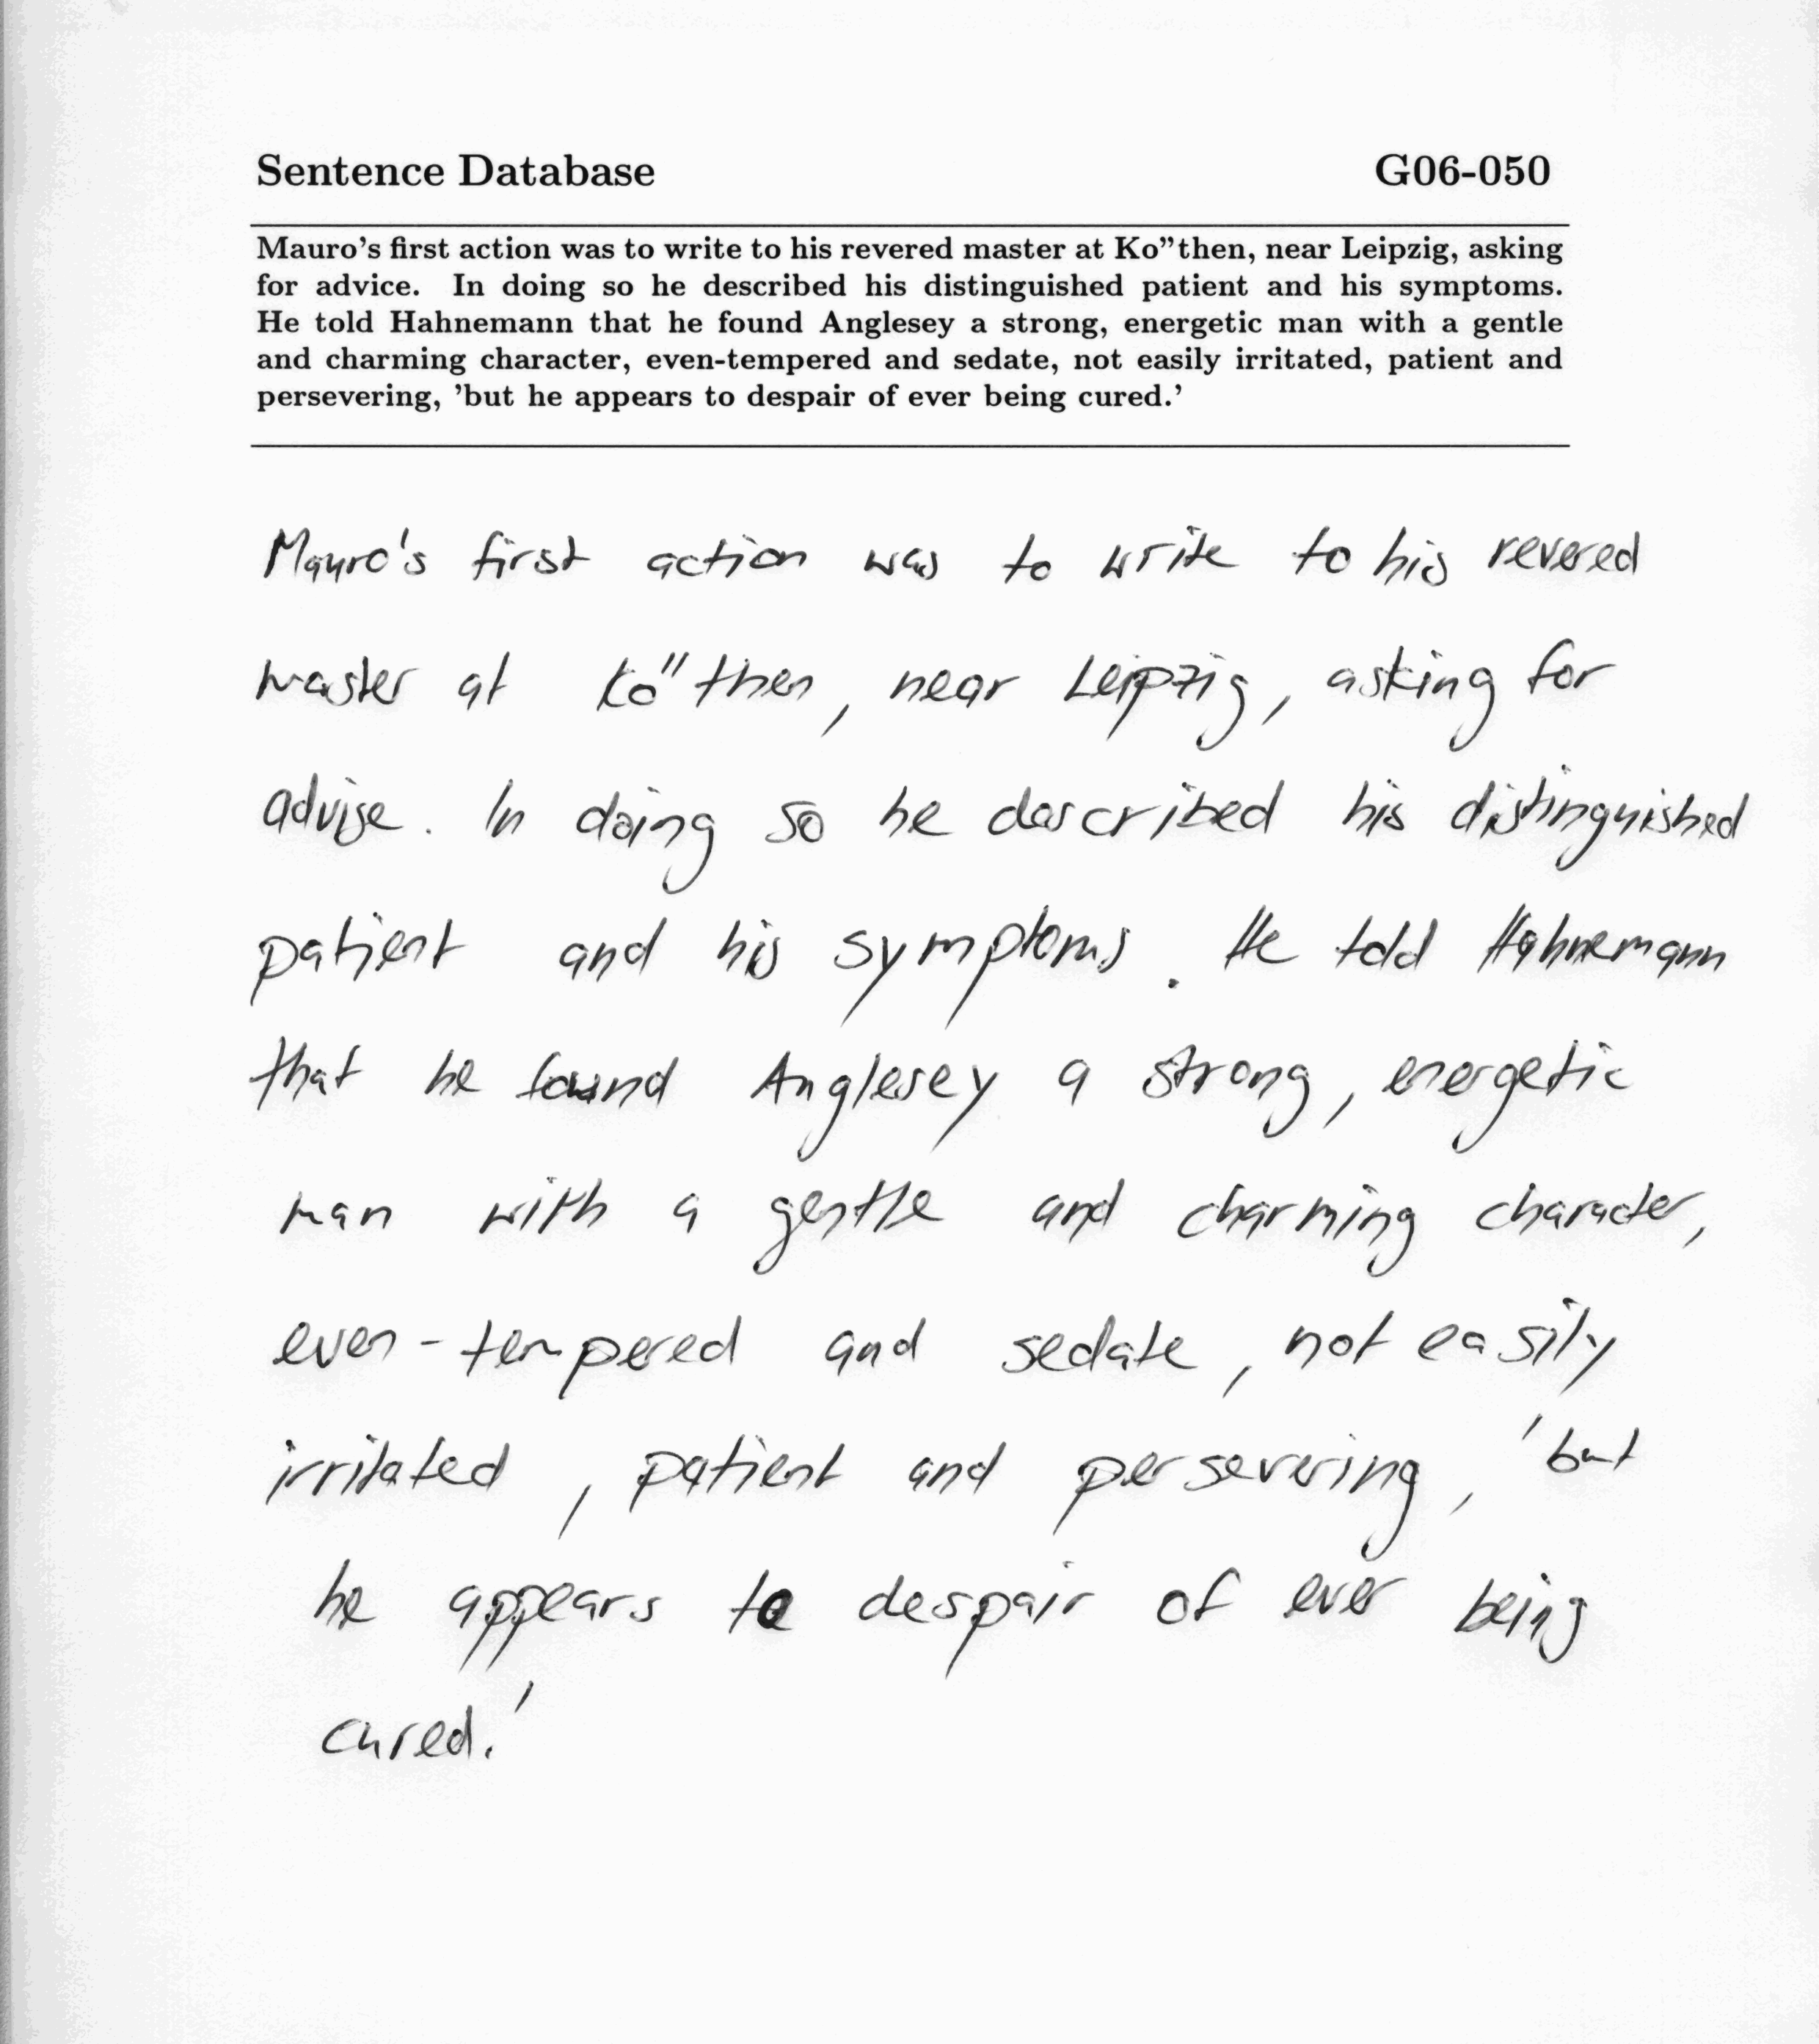 Sentence Database G06-050
Mauro's first action was to write to his revered master at Ko"then, near Leipzig, asking
for advice. In doing so he described his distinguished patient and his symptoms.
He told Hahnemann that he found Anglesey a strong, energetic man with a gentle
and charming character, even-tempered and sedate, not easily irritated, patient and
persevering, 'but he appears to despair of ever being cured.'
Mauro's first action was to write to his revered
master at Ko"then, near Leipzig, asking for
advise. In doing so he described his distinguished
patient and his symptoms. He told Hahnemann
that he found Anglesey a strong, energetic
man with a gentle and charming character,
even-tempered and sedate, not easily
irritated, patient and persevering, 'but
he appears to despair of ever being
cured.'